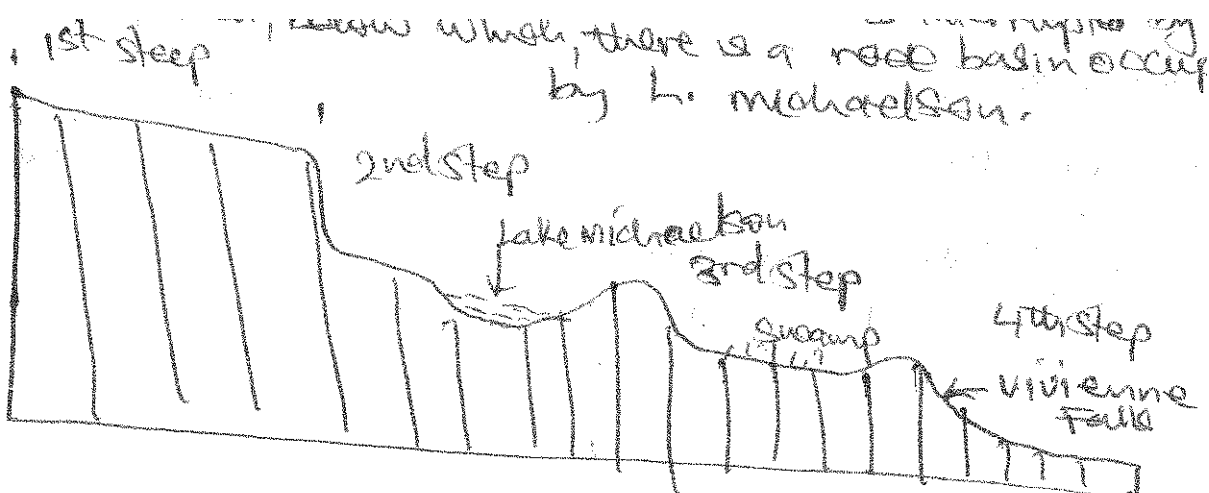 below which, there is a rock basin occup
by L. michaelson.
1st steep
2nd step
Lake Michaelson
3rd step
swamp
4th step
Vivienne
Falls